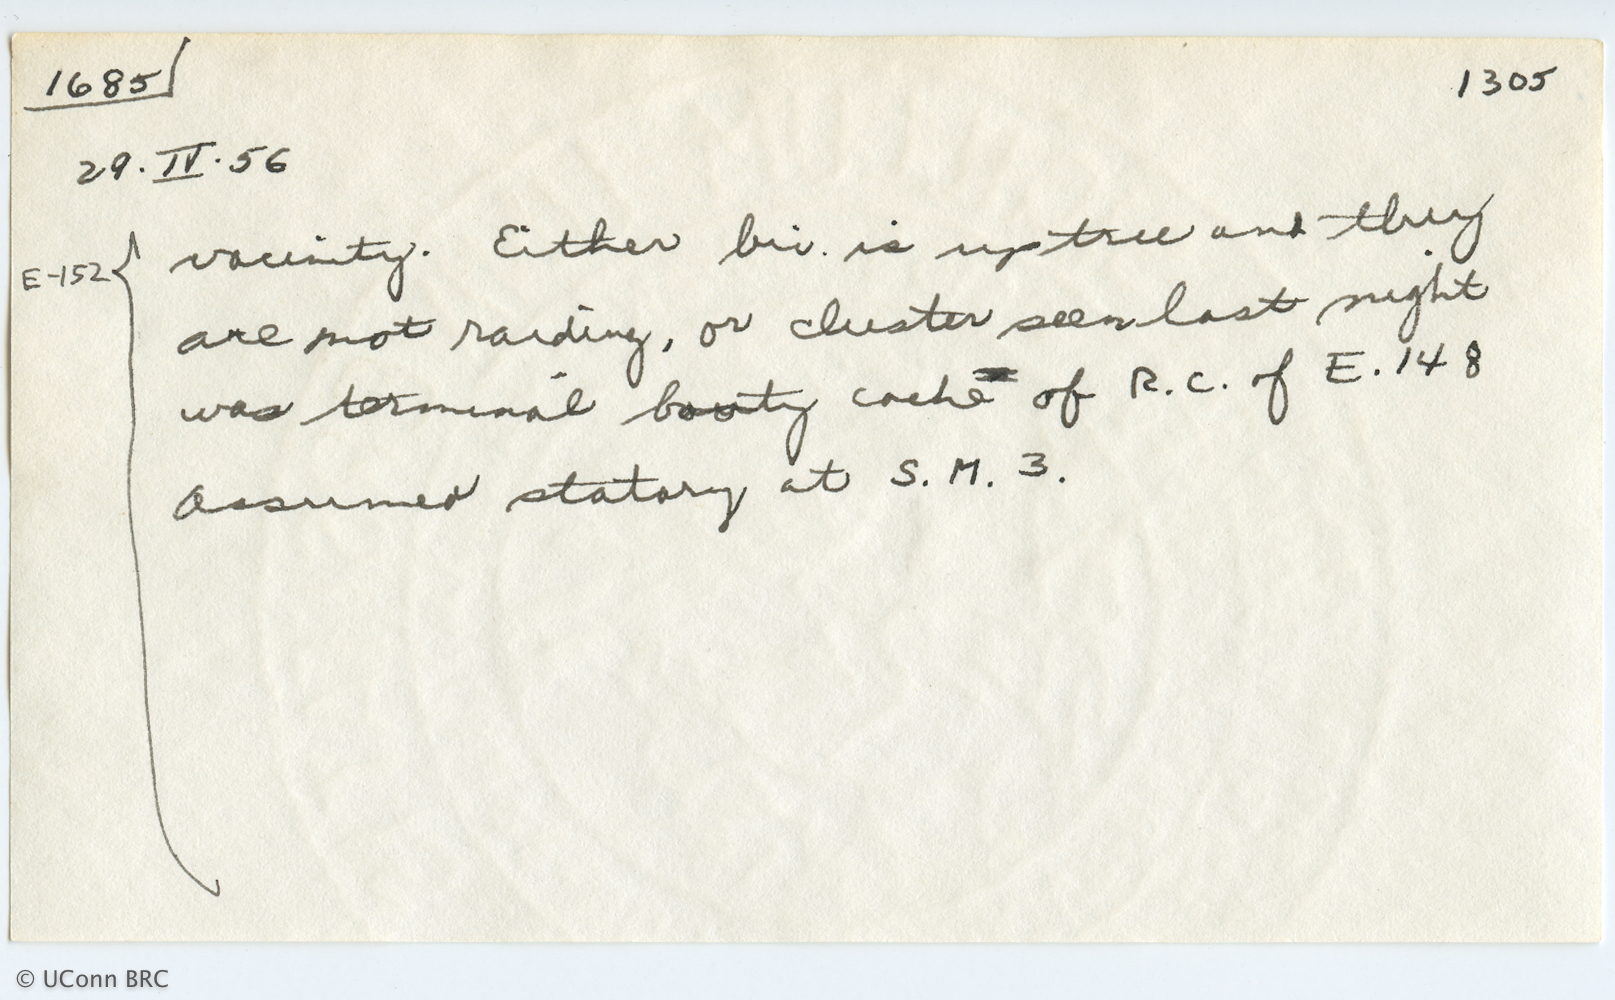 1685 1305
29.IV.56
E-152 { vacinity. Either biv. is up tree and they
are not raiding, or cluster seen last night
was terminal booty cache of R.C. of E.148
assumed statary at S.M. 3.
© UConn BRC